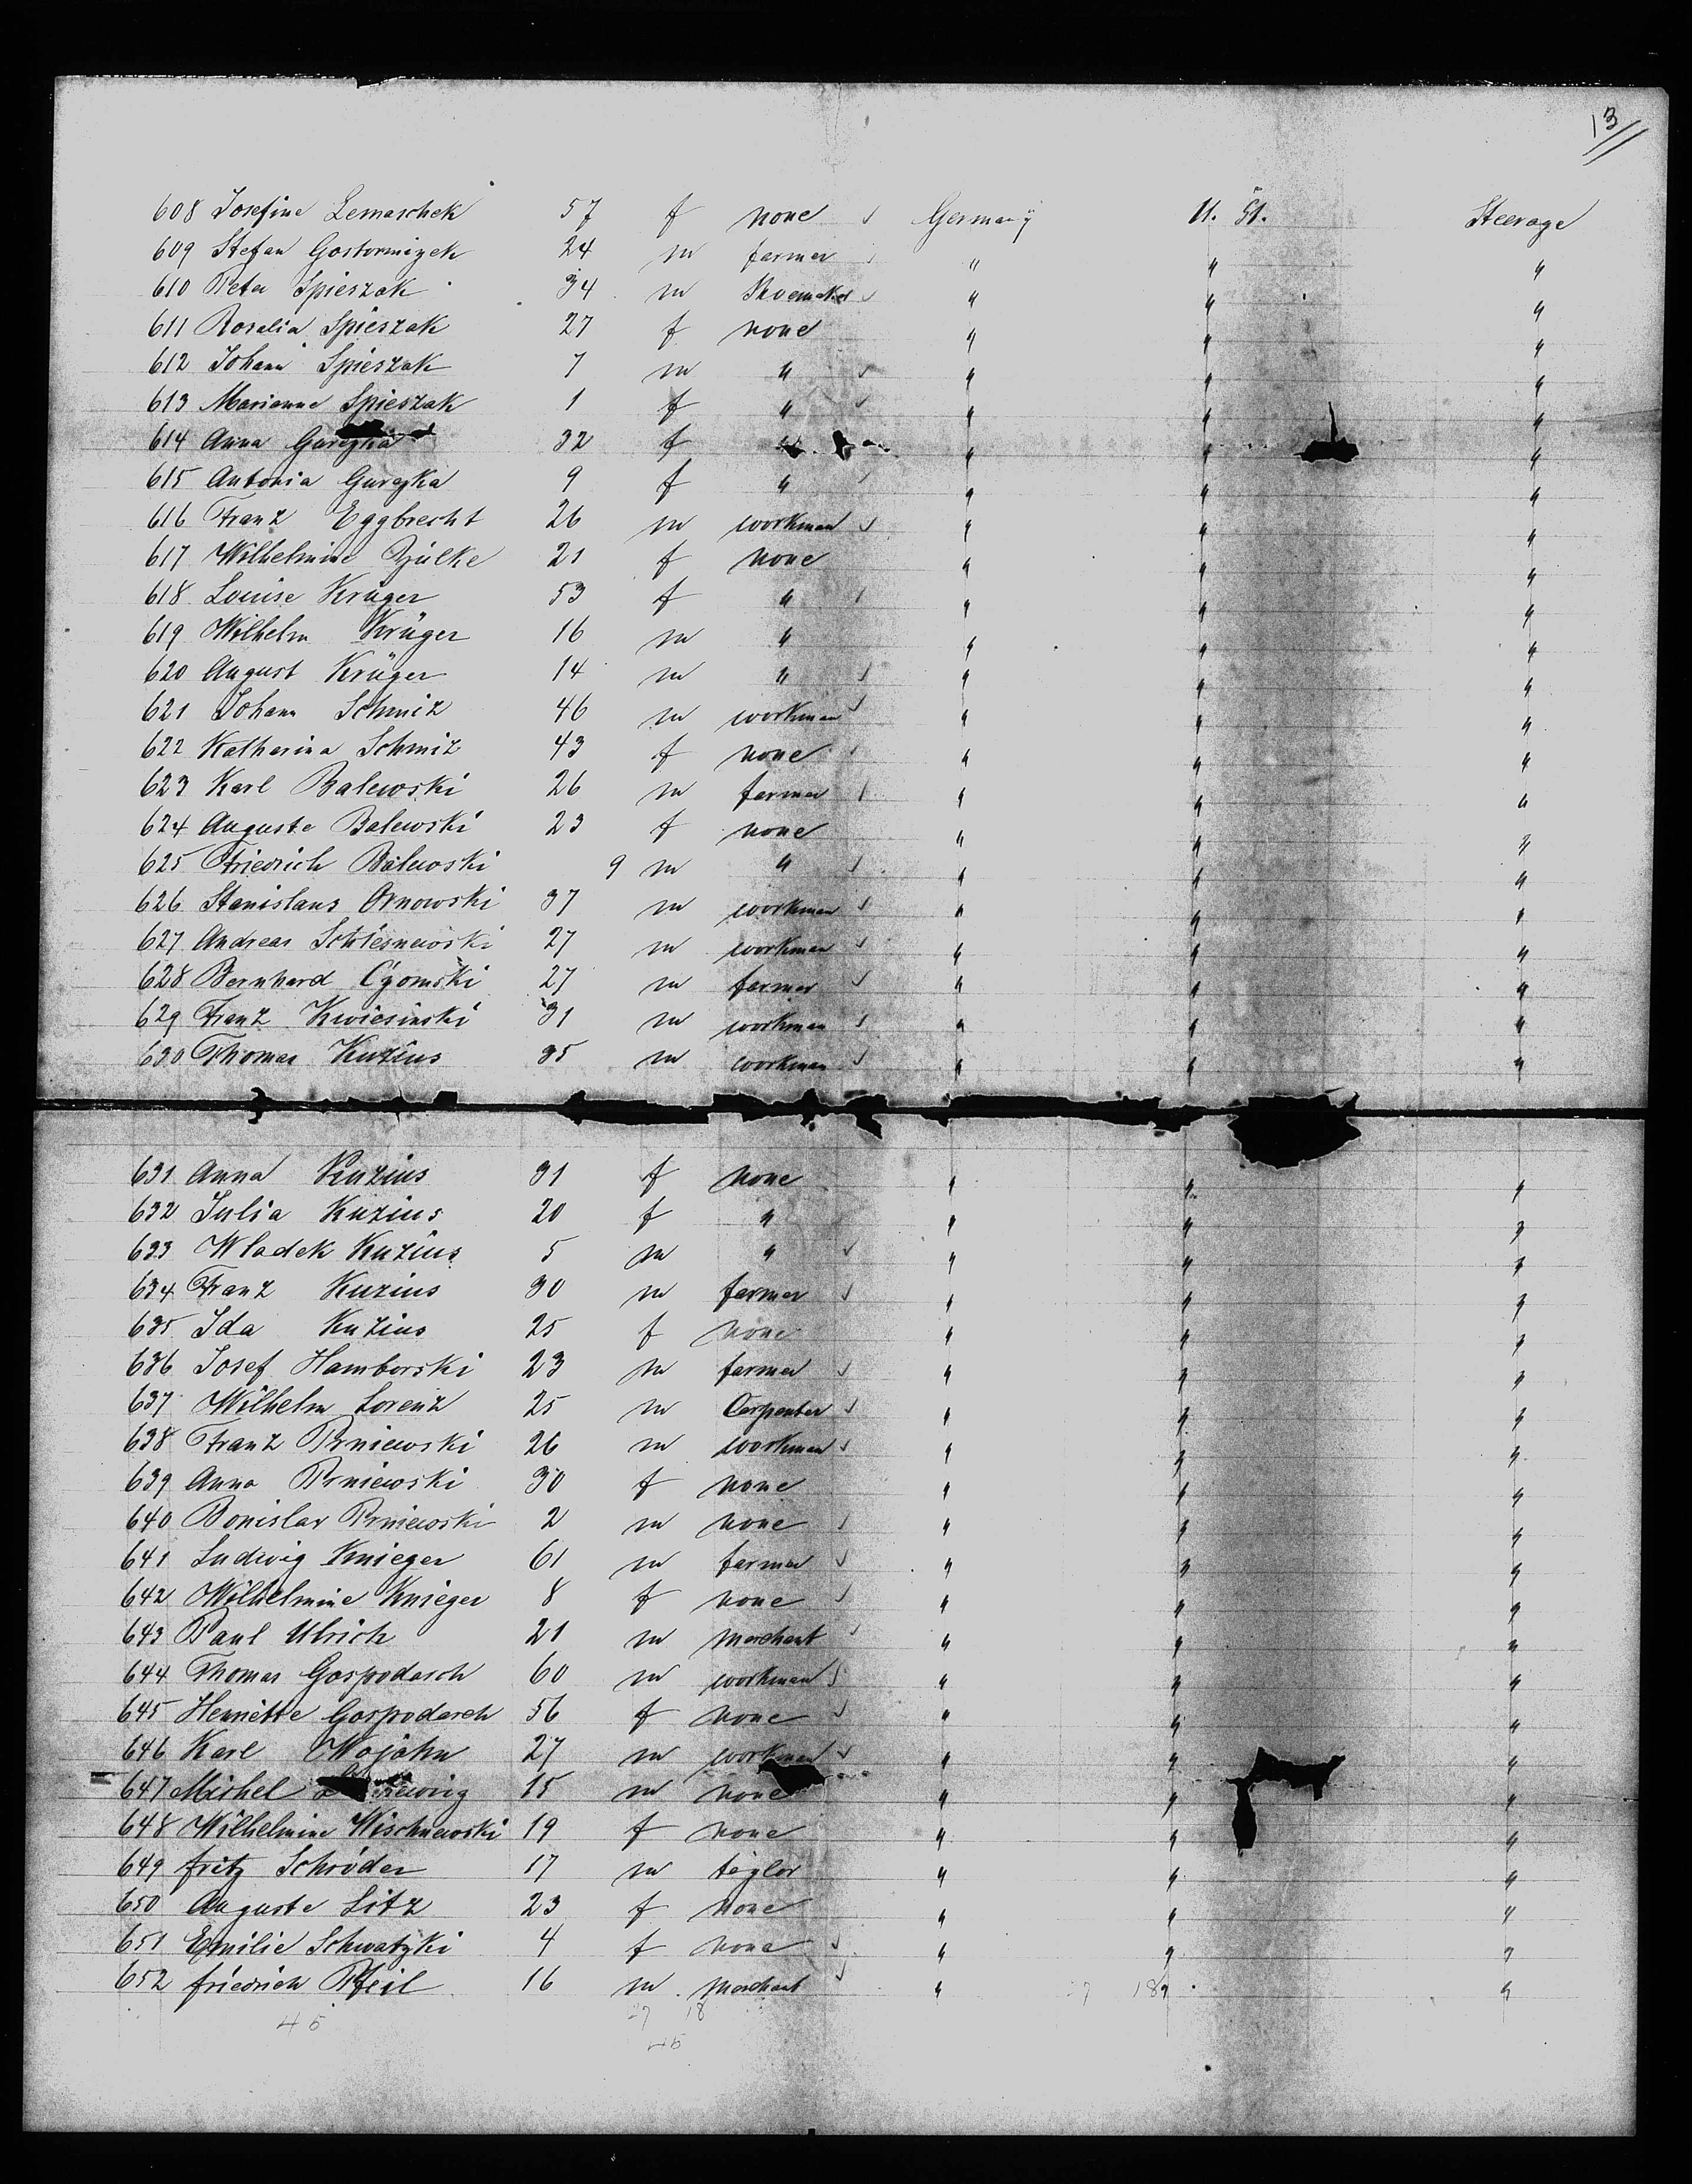 13
608 Josefine Lemaschek 57 f none ✓ Germany U. St. Steerage
609 Stefan Gostormizek 24 m farmer ✓ " " "
610 Peter Spieszak 34 m Shoemaker ✓ " " "
611 Rosalia Spieszak 27 f none " " "
612 Johann Spieszak 7 m " ✓ " " "
613 Marianne Spieszak 1 f " ✓ " " "
614 Anna 32 f " " "
615 Antonia Gurezka 9 f " ✓ " " "
616 Franz Eggbrecht 26 m workman ✓ " " "
617 Wilhelmine Zülke 21 f none " " "
618 Louise Krüger 53 f " ✓ " " "
619 Wilhelm Krüger 16 m " " " "
620 August Krüger 14 m " ✓ " " "
621 Johann Schmiz 46 m workman ✓ " " "
622 Katharina Schmiz 43 f none ✓ " " "
623 Karl Balewski 26 m farmer ✓ " " "
624 Auguste Balewski 23 f none " " "
625 Friedrich Balewski 9 m " ✓ " " "
626 Stanislaus Ornowski 37 m workman ✓ " " "
627 Andreas Schlesnewski 27 m workman ✓ " " "
628 Bernhard Cygomski 27 m farmer ✓ " " "
629 Franz Kwiesinski 31 m workman ✓ " " "
630 Thomas Kuzius 35 m workman ✓ " " "
631 Anna Kuzius 31 f none " " "
632 Julia Kuzius 20 f " " " "
633 Wladek Kuzius 5 m " ✓ " " "
634 Franz Kuzius 30 m farmer ✓ " " "
635 Ida Kuzius 25 f none " " "
636 Josef Hamborski 23 m farmer ✓ " " "
637 Wilhelm Lorenz 25 m Carpenter ✓ " " "
638 Franz Prniewski 26 m workman ✓ " " "
639 Anna Prniewski 30 f none " " "
640 Bonislav Prniewski 2 m none ✓ " " "
641 Ludwig Knieger 61 m farmer ✓ " " "
642 Wilhelmine Knieger 8 f none ✓ " " "
643 Paul Ulrich 21 m merchant ✓ " " "
644 Thomas Gospodasch 60 m workman ✓ " " "
645 Henriette Gospodasch 56 f none ✓ " " "
646 Karl Wojahn 27 m workman ✓ " " "
647 Michel 15 m none " " "
648 Wilhelmine Wischnewski 19 f none " " "
649 fritz Schröder 17 m taylor " " "
650 Auguste Litz 23 f none " " "
651 Emilie Schwatzki 4 f none ✓ " " "
652 friedrich Pfeil 16 m merchant ✓ " 27 18 " "
45 27 18
45